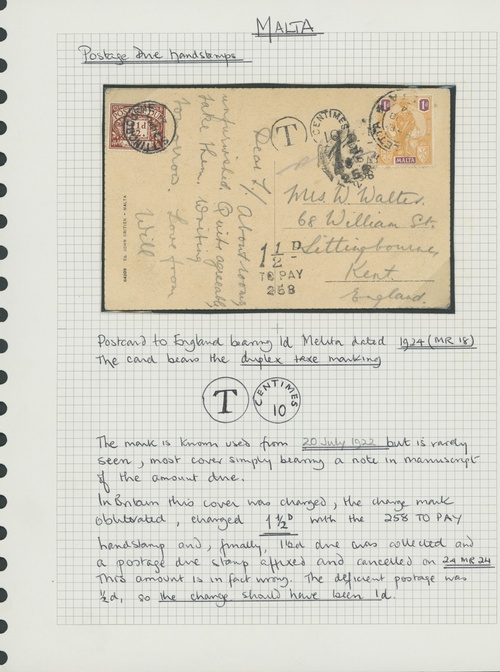 MALTA
Postage Due Handstamps
T
CENTIMES
10
1d
1d
MALTA
Dear F/ About rooms
unfurnished. Quite agreeable
take them. Writing
tomorrow. Love from
Will
Mrs W. Walter.
68 William St.
Sittingbourne,
Kent
England.
1½D
TO PAY
258
Postcard to England bearing 1d Melita dated 1924 (MR 18)
The card bears the duplex taxe marking
T
CENTIMES
10
The mark is known used from 20 July 1922 but is rarely
seen, most cover simply bearing a note in manuscript
of the amount due.
In Britain this cover was charged, the charge mark
obliterated, charged 1½D with the 258 TO PAY
handstamp and, finally, 1½d due was collected and
a postage due stamp affixed and cancelled on 24 MR 24
This amount is in fact wrong. The deficient postage was
½d, so the charge should have been 1d.